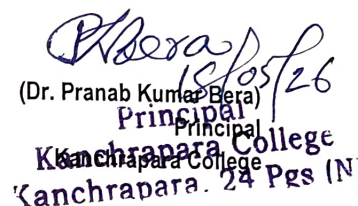 PKBera
15/05/26
(Dr. Pranab Kumar Bera)
Principal
Principal
Kanchrapara College
Kanchrapara College
Kanchrapara. 24 Pgs (N